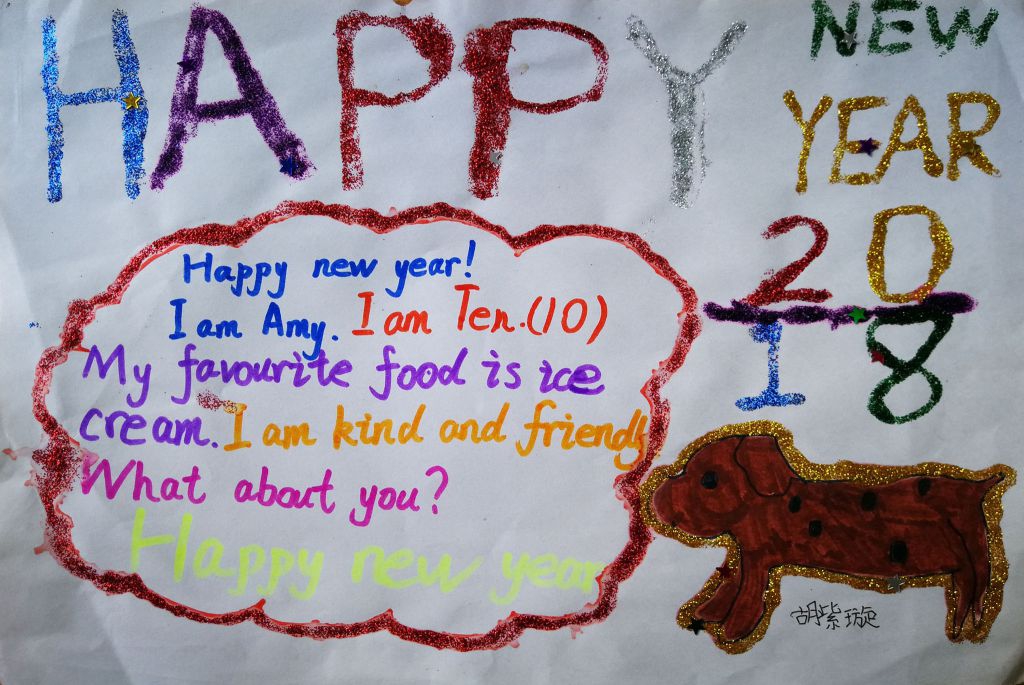 HAPPY
NEW
YEAR
20
18
Happy new year!
I am Amy. I am Ten.(10)
My favourite food is ice
cream. I am kind and friendly
What about you?
Happy new year
胡紫璇